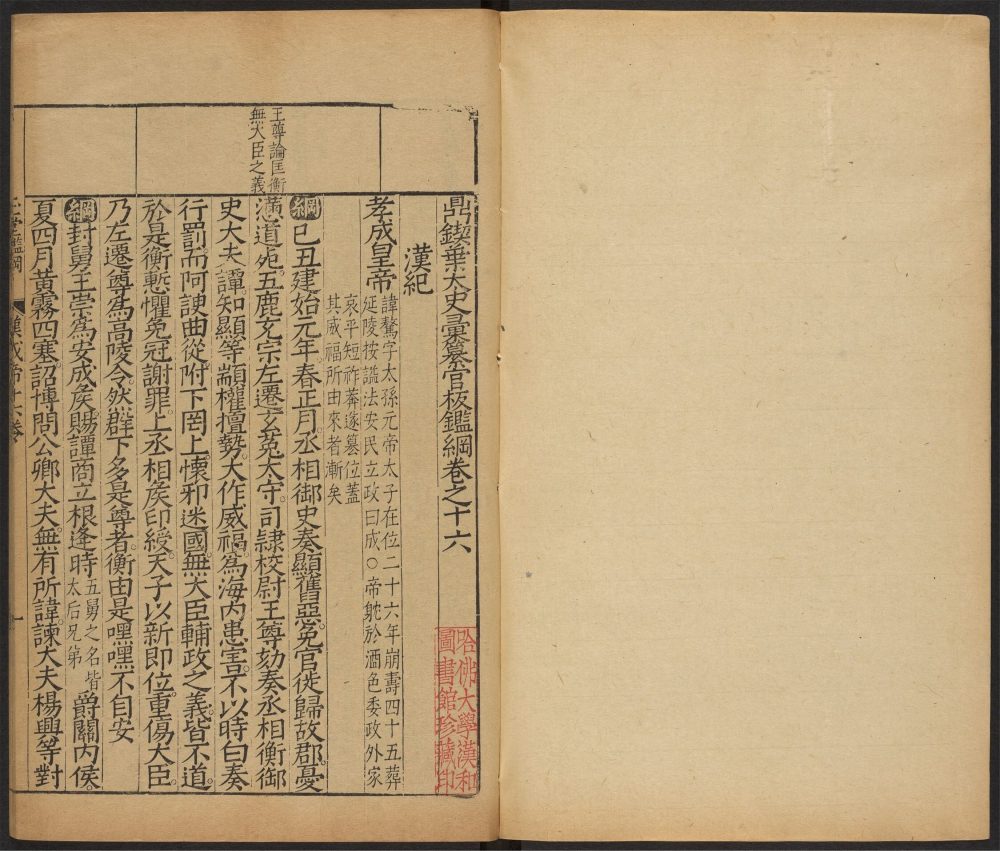 鼎鍥葉太史彙纂官板鑑綱卷之十六
漢紀
孝成皇帝
諱驁字太孫元帝太子在位二十六年崩壽四十五葬
延陵按謚法安民立政曰成○帝躭於酒色委政外家
哀平短祚莽遂篡位蓋
其威福所由來者漸矣
綱己丑建始元年春正月丞相御史奏顯舊惡免官徙歸故郡憂
懣道死五鹿充宗左遷玄菟太守司隷校尉王尊劾奏丞相衡御
史大夫譚知顯等顓權擅勢大作威福為海内患害不以時白奏
行罰而阿諛曲從附下罔上懷邪迷國無大臣輔政之義皆不道
於是衡慙懼免冠謝罪上丞相矦印綬天子以新即位重傷大臣
乃左遷尊為高陵令然群下多是尊者衡由是嘿嘿不自安
綱封舅王崇為安成矦賜譚商立根逢時
五舅之名皆
太后兄弟
爵關内侯
夏四月黃霧四塞詔博問公卿大夫無有所諱諫大夫楊興等對
王尊論匡衡
無大臣之義
漢成帝十六卷
一
哈佛大學漢和
圖書館珍藏印